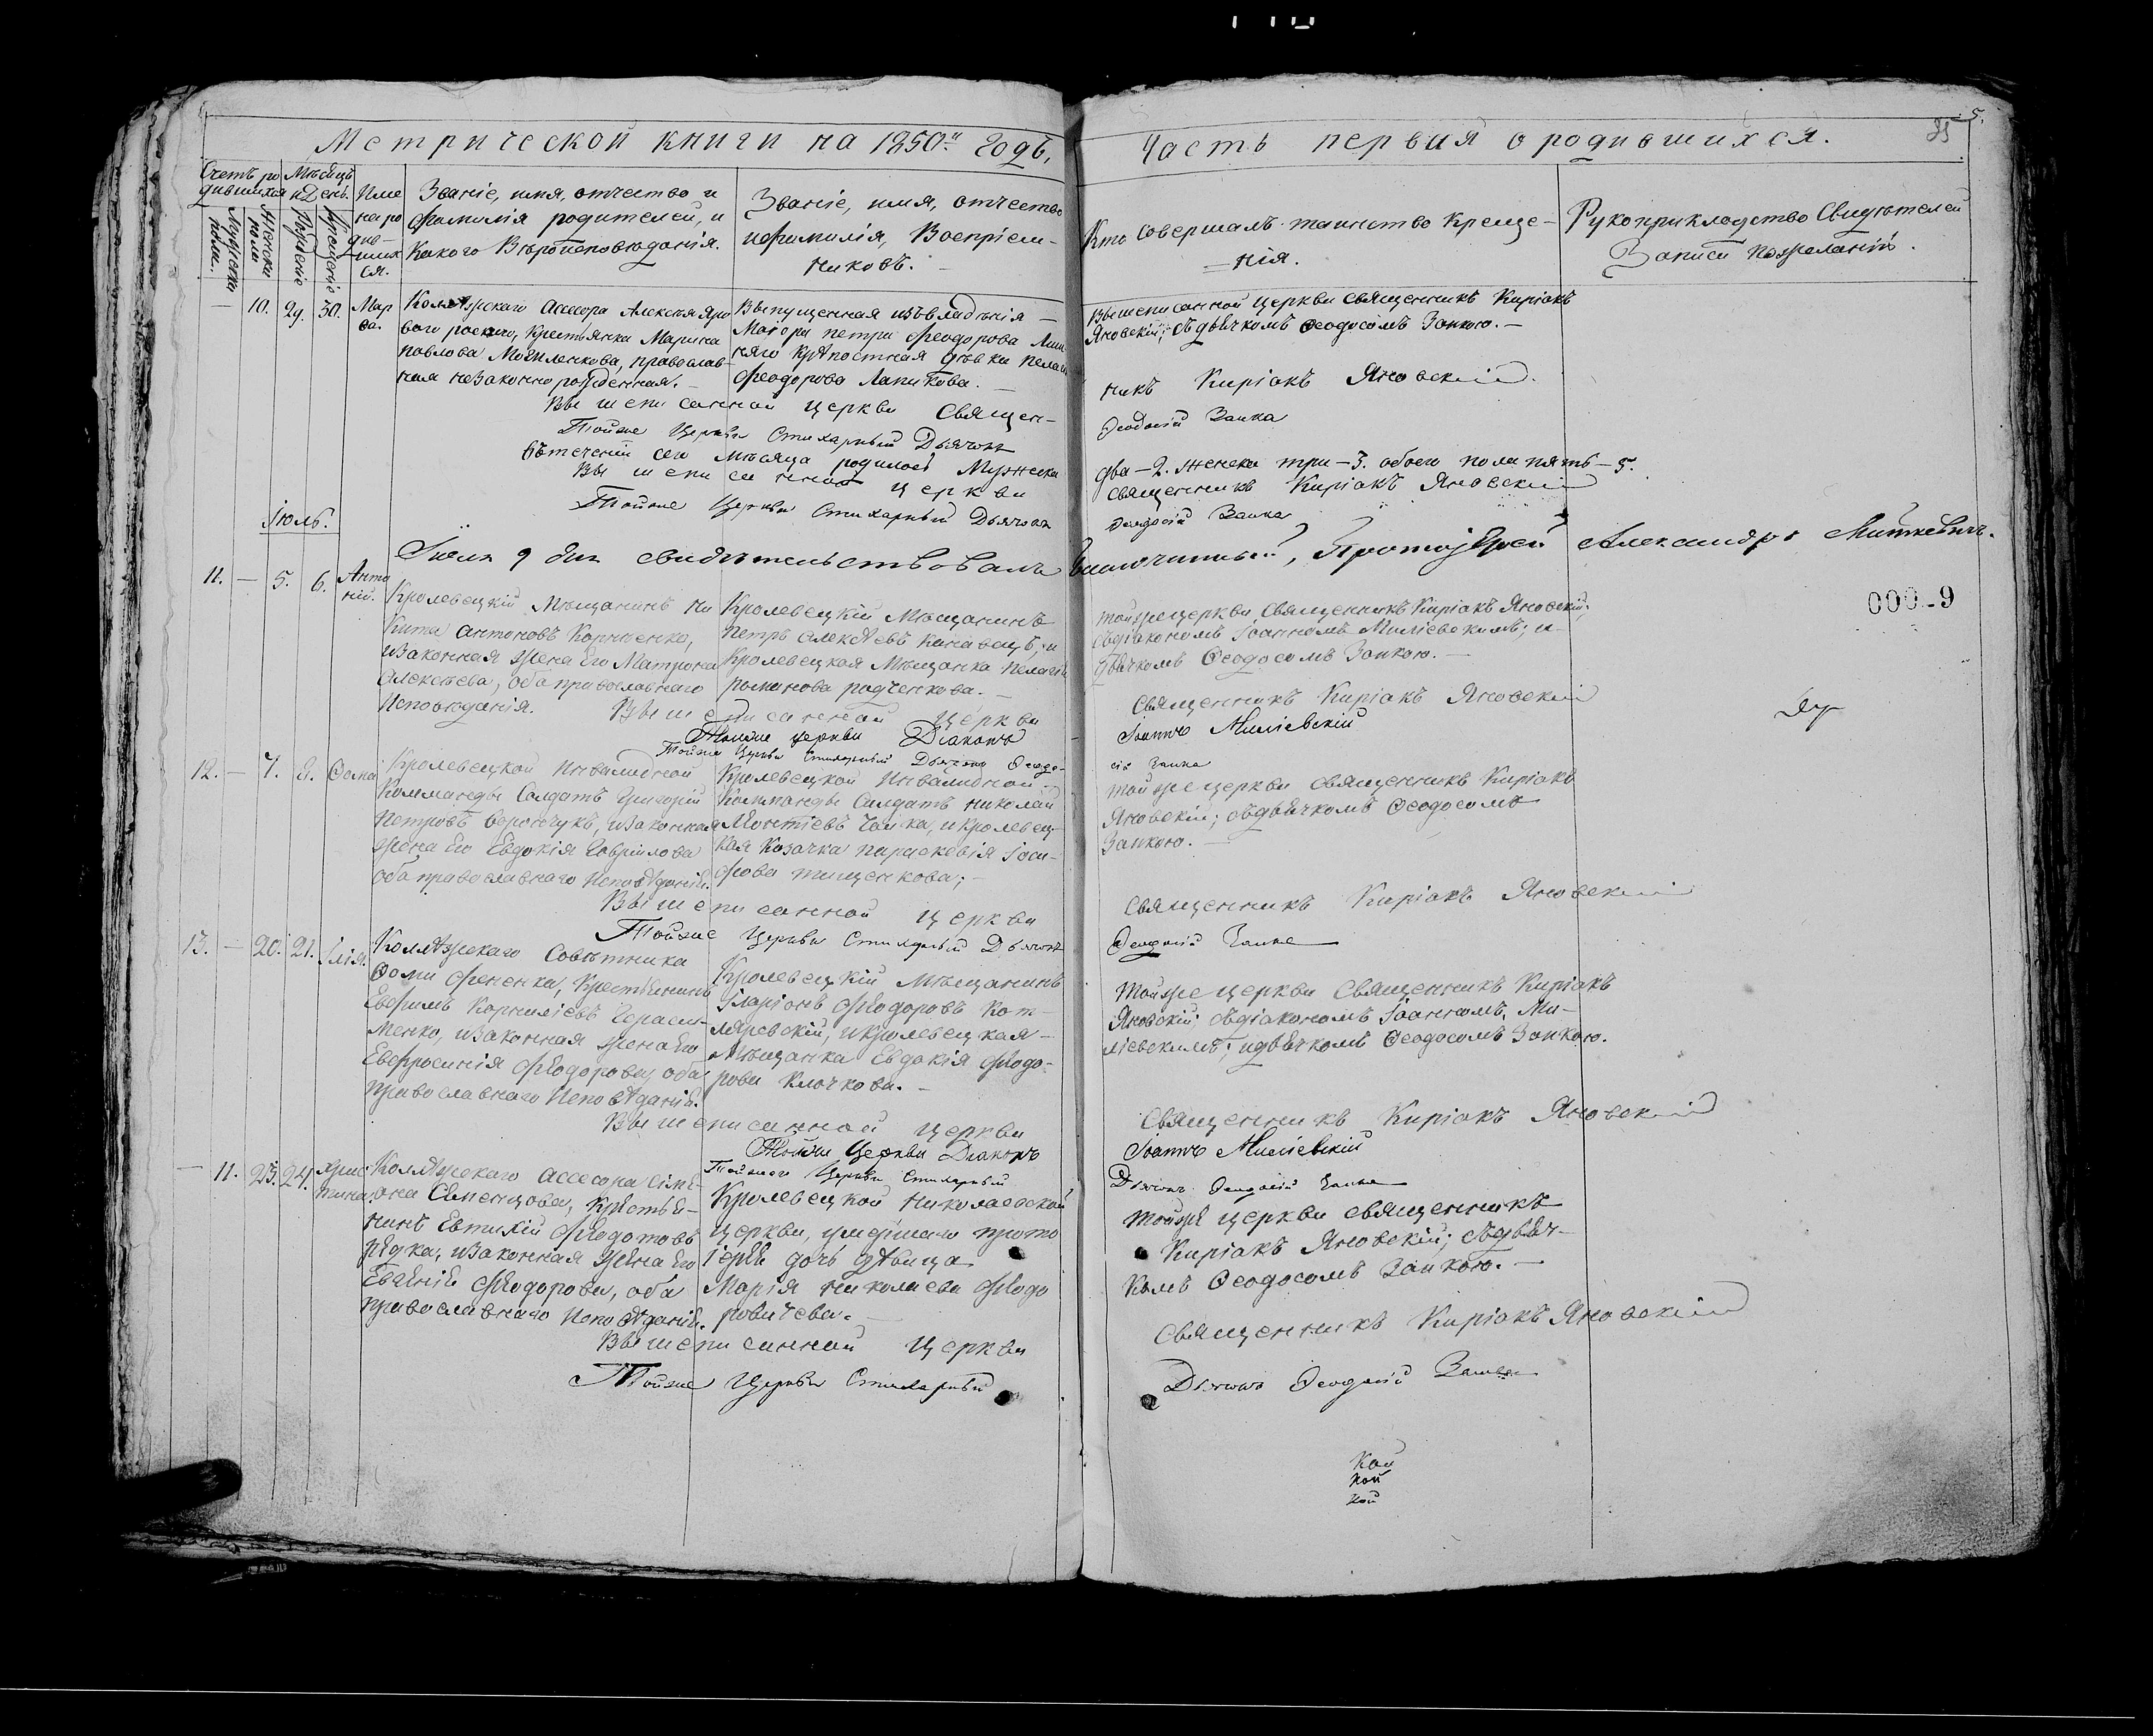 Метрической книги на 1850.й Годъ,
Часть первая о родившихся.
5.
Счетъ ро
дившихся
Мужеска
полы.
Женска
полы
Мѣсяцъ
и День.
Рожденіе
Крещеніе
Име
на ро
див—
шихся.
Званіе, имя, отчество и
фамилія родителей, и
Какого Вѣроисповѣданія.
Званіе, имя, отчество
и Фамилія, Воспріем—
никовъ.
Кто совершалъ таинство Креще—
нія.
Рукоприкладство Свидѣтелей
Записи по желанію.
— 10. 29. 30.
Мар
ѳа.
Коллѣжскаго Ассесора Алексѣя Яро
Крестьянка Марина
павлова православ—
ная незаконнорожденная.—
Выпущенная изъ владѣнія —
Маіора петра Феодорова
крѣпостная дѣвка
Феодорова Лапикова.—
Вышеписанной церкви священникъ Киріакъ
Яновскій; съ дьячкомъ Ѳеодосомъ Заикою.—
Вышеписанной церкви Священ—
никъ Киріакъ Яновскій.
Тойже Церкви Стихарный Дьячокъ
Ѳеодосій Заика
Въ теченіи сего мѣсяца родилось Мужеска
два—2. женска три—3. обоего пола пять—5.
Вышеписанной церкви
священникъ Киріакъ Яновскій
Тойже Церкви Стихарный Дьячокъ
Ѳеодосій Заика
Іюль.
Іюля 9 дня свидѣтельствовалъ Благочинный, Протоіерей Александръ Миткевичъ.
000-9
11. — 5. 6.
Анто
ній.
Кролевецкій Мѣщанинъ Ни
кита антоновъ Корніенко,
и Законная жена Его Матрона
Алексѣева, оба православнаго
Исповѣданія.
Кролевецкій Мѣщанинъ
петръ алексѣевъ и
Кролевецкая Мѣщанка Пелагія
романова радченкова.—
тойже церкви Священникъ Киріакъ Яновскій;
съ діакономъ Іоанномъ Миліевскимъ; и—
дьячкомъ Ѳеодосомъ Заикою.—
Вышеписанной Церкви
Священникъ Киріакъ Яновскій
Тойже церкви Діаконъ
Іоаннъ Миліевскій
Тойже Церкви Стихарный Дьячокъ Ѳеодо—
сій Заика
12. — 7. 8. Ѳома
Кролевецкой Инвалидной
Комманды Солдатъ Григорій
Петровъ и Законная
жена Его Евдокія Гавріилова
оба православнаго Исповѣданія.
Кролевецкой Инвалидной
Комманды Солдатъ николай
Леонтіевъ Чайка, и Кролевец—
кая Козачка параскевія Іоси—
фова тищенкова;—
тойже церкви священникъ Киріакъ
Яновскій; съ дьячкомъ Ѳеодосомъ
Заикою.—
Вышеписанной Церкви
Священникъ Киріакъ Яновскій
Тойже Церкви Стихарный Дьячокъ
Ѳеодосій Заика
13. — 20. 21. Ілія.
Коллѣжскаго Совѣтника
Ѳомы Фененка, Крестьянинъ
Евфимъ Корниліевъ Гераси—
менко, и Законная жена Его
Евфросинія Феодорова, оба
православнаго Исповѣданія.
Кролевецкій Мѣщанинъ
Іларіонъ Феодоровъ Кот—
ляревскій, и Кролевецкая—
Мѣщанка Евдокія Феодо—
рова Клочкова.—
тойже церкви Священникъ Киріакъ
Яновскій; съ діакономъ Іоанномъ, Ми—
ліевскимъ; и дьячкомъ Ѳеодосомъ Заикою.
Вышеписанной Церкви
Священникъ Киріакъ Яновскій
Тойже Церкви Діаконъ
Іоаннъ Миліевскій
Тойже Церкви Стихарный
Дьячокъ Ѳеодосій Заика
— 11. 23. 24.
Хрис
тина
Коллѣжскаго ассесора Сіме—
она Семенцова, Крестья—
нинъ Евтихій Федотовъ
и Законная жена Его
Евгенія Феодорова, оба
православнаго Исповѣданія.
Кролевецкой николаевской
церкви, умершаго прото
іерея дочь дѣвица
Марія николаева Феодо
ровичева.—
тойже церкви священникъ
Киріакъ Яновскій; съ дьяч—
комъ Ѳеодосомъ Заикою.—
Вышеписанной Церкви
Священникъ Киріакъ Яновскій
Тойже Церкви Стихарный
Дьячокъ Ѳеодосій Заика
Кой
Кой
Кой